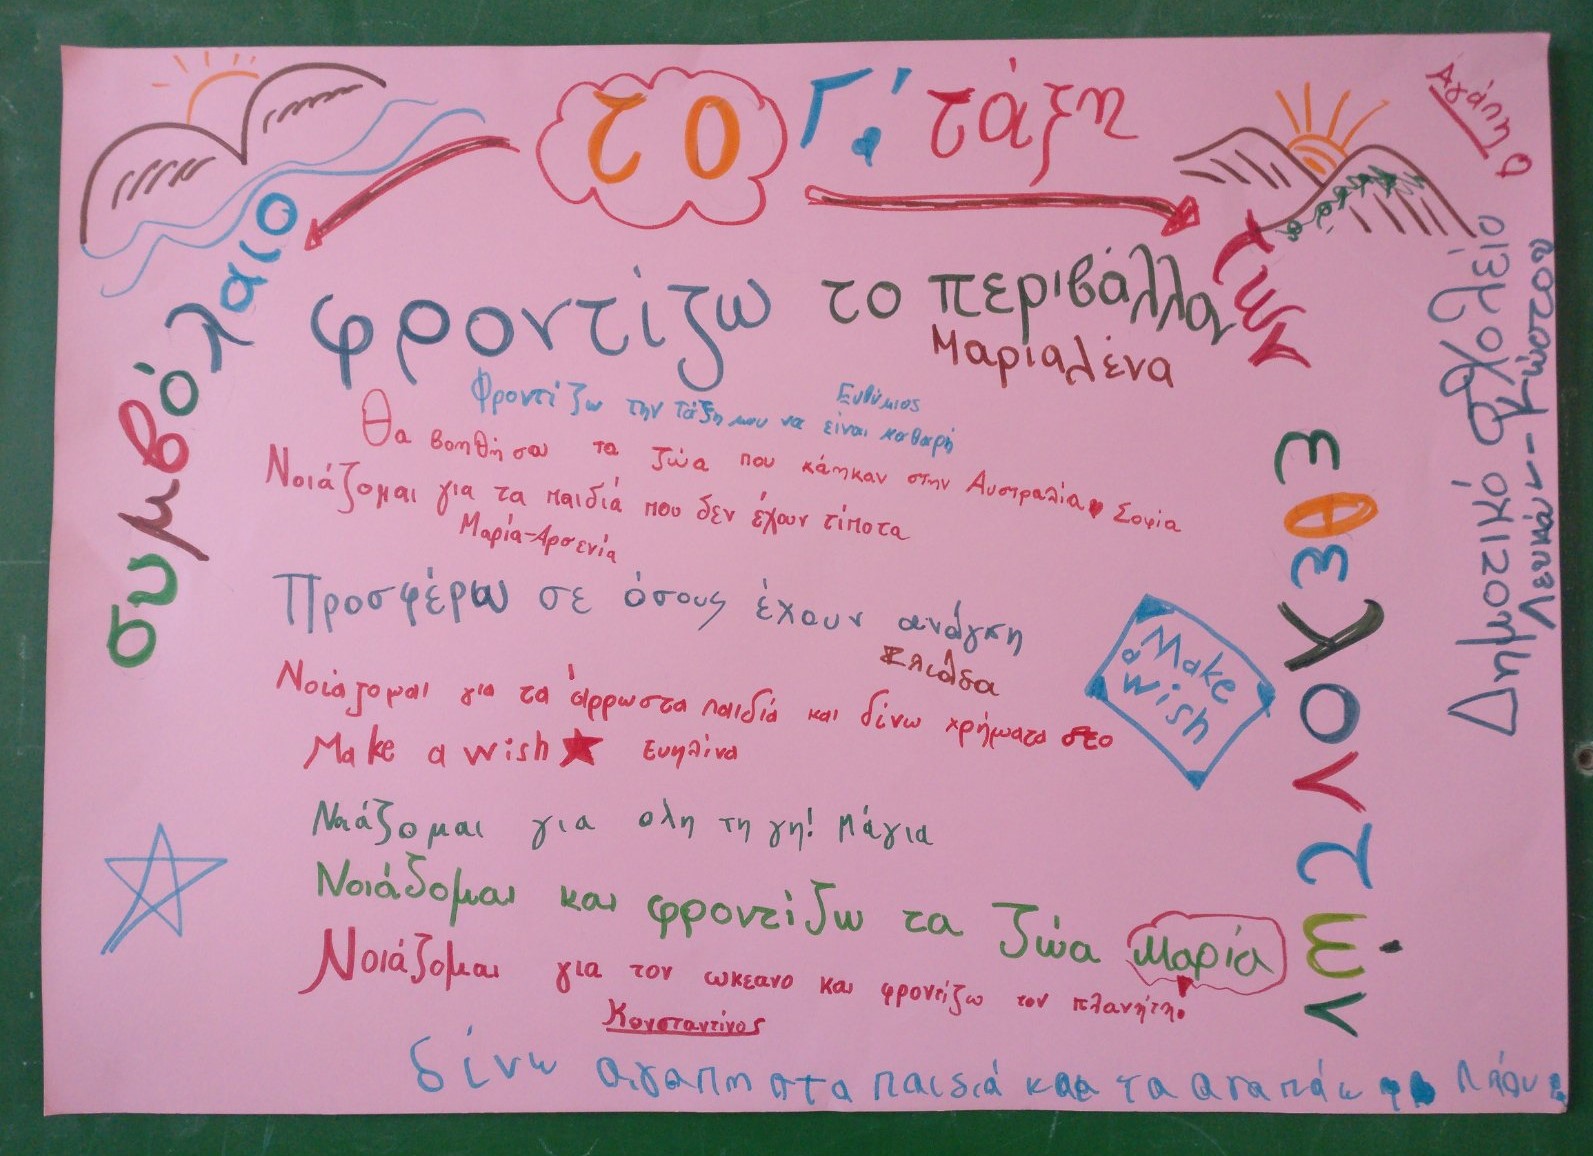 το Γ΄ τάξη
Αγάπη
συμβόλαιο
των
εθελοντών
Δημοτικό σχολείο
Λευκάν-Κώστου
φροντίζω το περιβάλλον
Μαριαλένα
Φροντίζω την τάξη μου να είναι καθαρή
Ευθύμιος
Θα βοηθήσω τα ζώα που κάηκαν στην Αυστραλία Σοφία
Νοιάζομαι για τα παιδιά που δεν έχουν τίποτα
Μαρία-Αρσενία
Προσφέρω σε όσους έχουν ανάγκη
Ελιάδα
Νοιάζομαι για τα άρρωστα παιδιά και δίνω χρήματα στο
Make a wish Ευηλίνα
Make
a
wish
Νοιάζομαι για ολη τη γη! Μάγια
Νοιάζομαι και φροντίζω τα ζώα Μαρία
Νοιάζομαι για τον ωκεανο και φροντίζω τον πλανήτη!
Κονσταντίνος
δίνω αγαπη στα παιδιά και τα αγαπάω